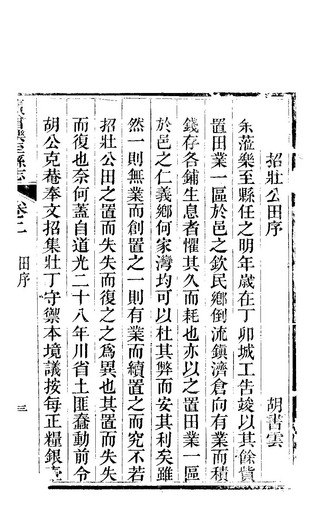 招壯公田序
胡書雲
余蒞樂至縣任之明年歲在丁卯城工告竣以其餘貲
置田業一區於邑之欽民鄉倒流鎮濟倉向有業而積
錢存各鋪生息者懼其久而耗也亦以之置田業一區
於邑之仁義鄉何家灣均可以杜其弊而安其利矣雖
然一則無業而創置之一則有業而續置之而究不若
招壯公田之置而失失而復之之為異也其置而失失
而復也奈何蓋自道光二十八年川省土匪蠢動前令
胡公克菴奉文招集壯丁守禦本境議按每正糧銀壹
樂至縣志
卷二
田序
三